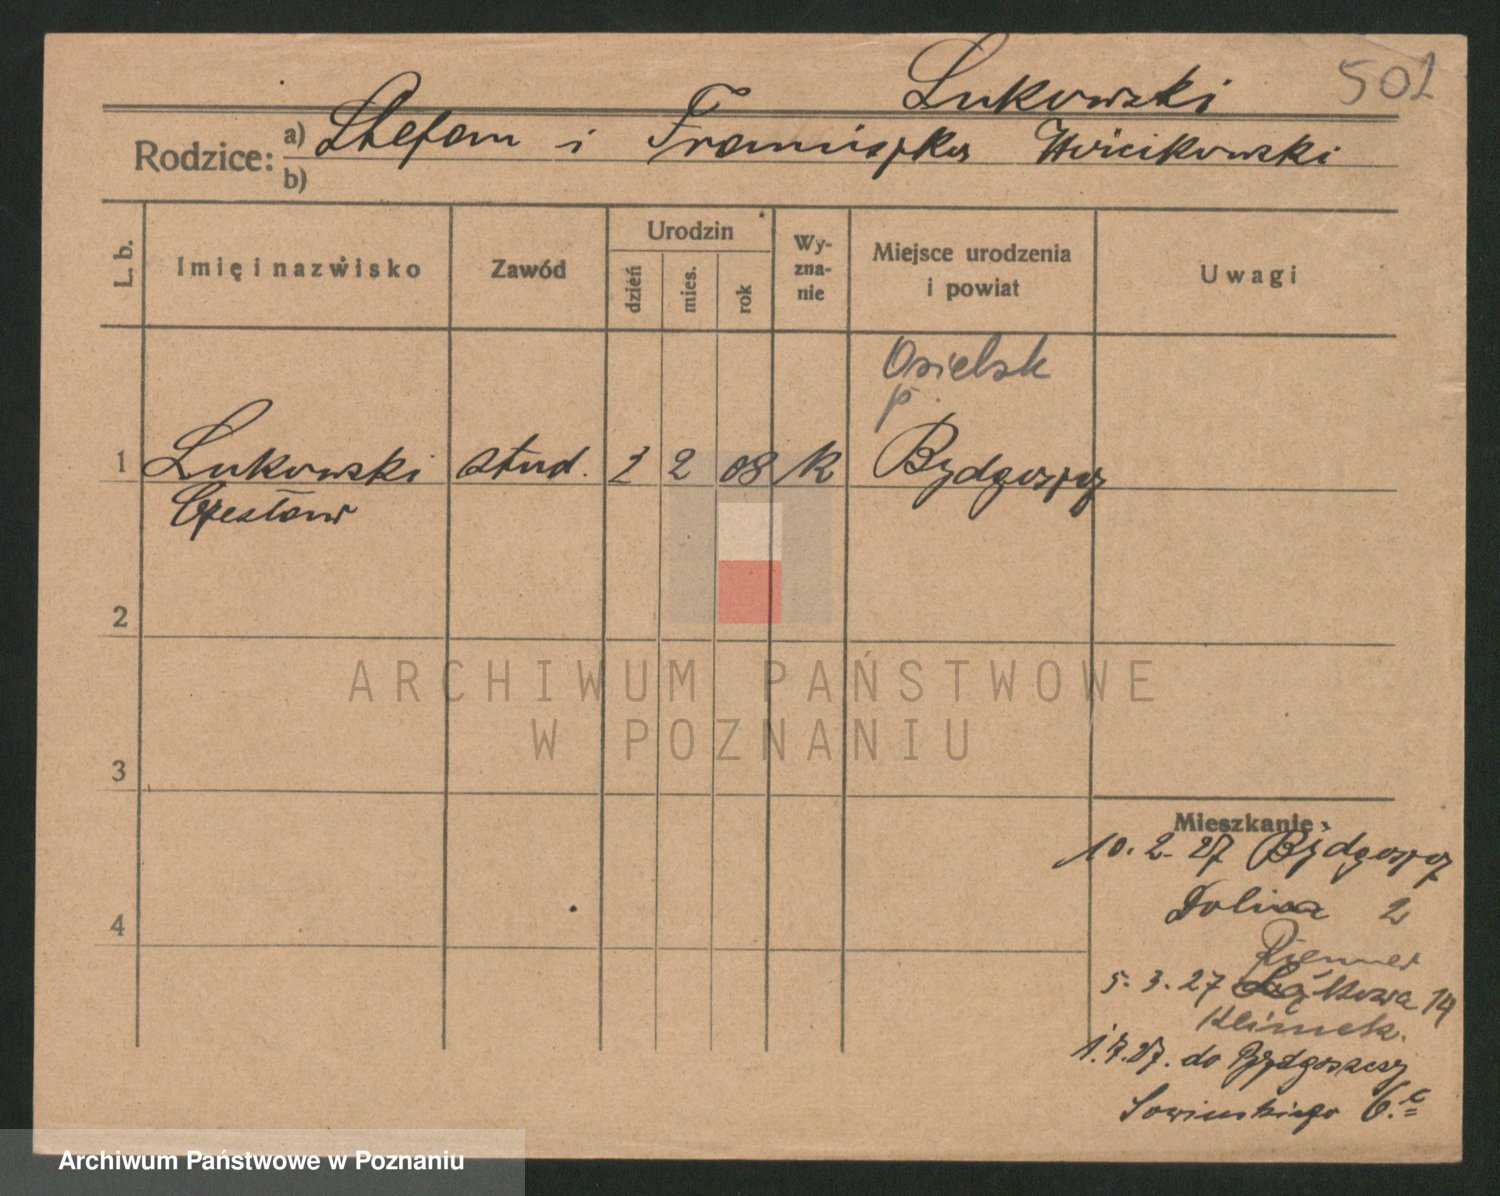 Lukowski 501
Rodzice: a) Stefan i Franciszka Wóicikowski
b)
L. b. Imię i nazwisko Zawód Urodzin dzień mies. rok Wyznanie Miejsce urodzenia i powiat Uwagi
Osielsk
p.
1 Lukowski stud. 2 2 08 k Bydgoszcz
Czesław
2
3
4
Mieszkanie
10. 2. 27 Bydgoszcz
Dolina 2
5. 3. 27 Łąkowa 14
Klimek.
1.7.27. do Bydgoszczy
Sowińskiego 6.
ARCHIWUM PAŃSTWOWE
W POZNANIU
Archiwum Państwowe w Poznaniu